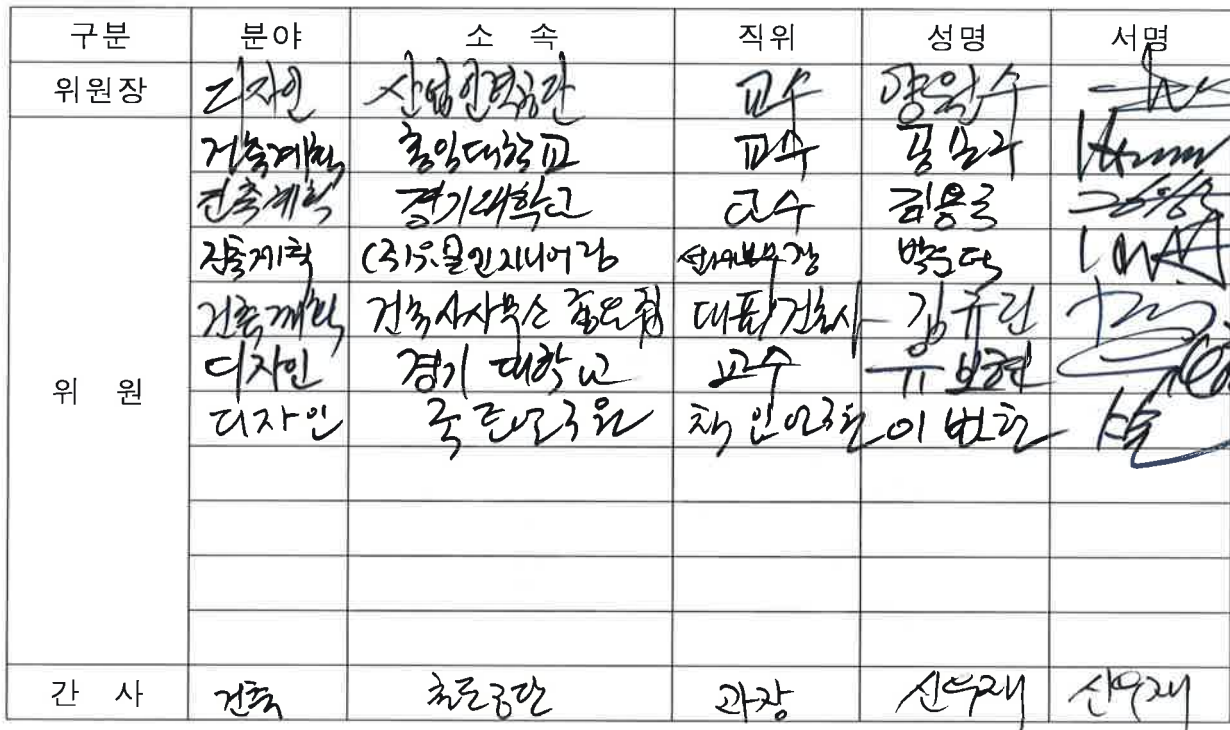 구분 분야 소 속 직위 성명 서명
위원장 디자인 산업인력공단 교수
건축계획 홍익대학교 교수
건축계획 경기대학교 교수 김용
건축계획 (주) 엔지니어링
건축계획 건축사사무소 대표/건축사 김규린
위 원 디자인 경기대학교 교수 유보현
디자인 국토연구원 책임연구원 이
간 사 건축 철도공단 과장 신우재 신우재